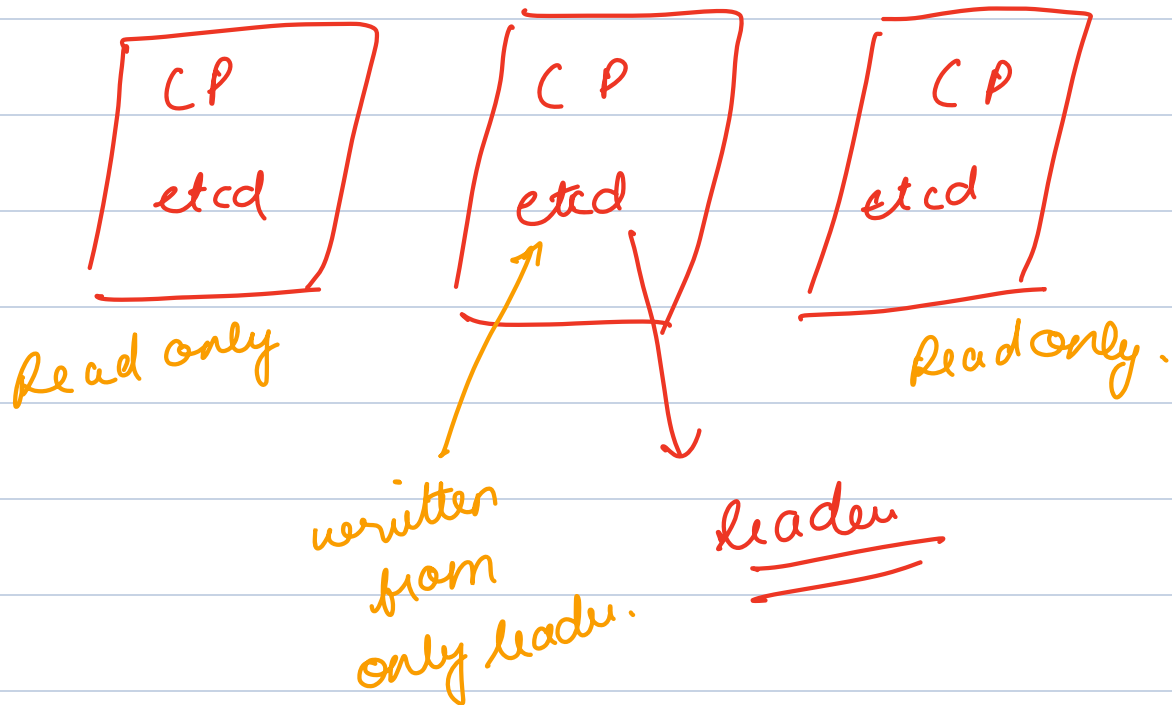 CP
etcd
CP
etcd
CP
etcd
Read only
Read only.
written
from
only leader.
leader